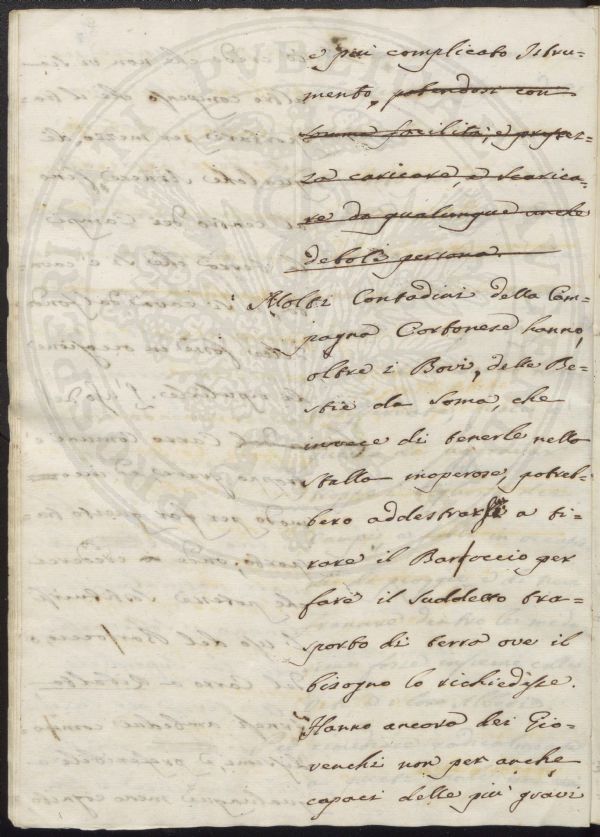 e più complicato Istru-
mento, potendosi con
somma facilità, e prestez-
za caricare, e scarica-
re da qualunque anche
debole persona.
Molti Contadini della Cam-
pagna Cortonese hanno,
oltre i Bovi, delle Be-
stie da Soma, che
invece di tenerle nella
stalla inoperose, potreb-
bero addestrarsi a ti-
rare il Barroccio per
fare il suddetto tra-
sporto di terra ove il
bisogno lo richiedesse.
Hanno ancora dei Gio-
venchi non per anche
capaci delle più gravi